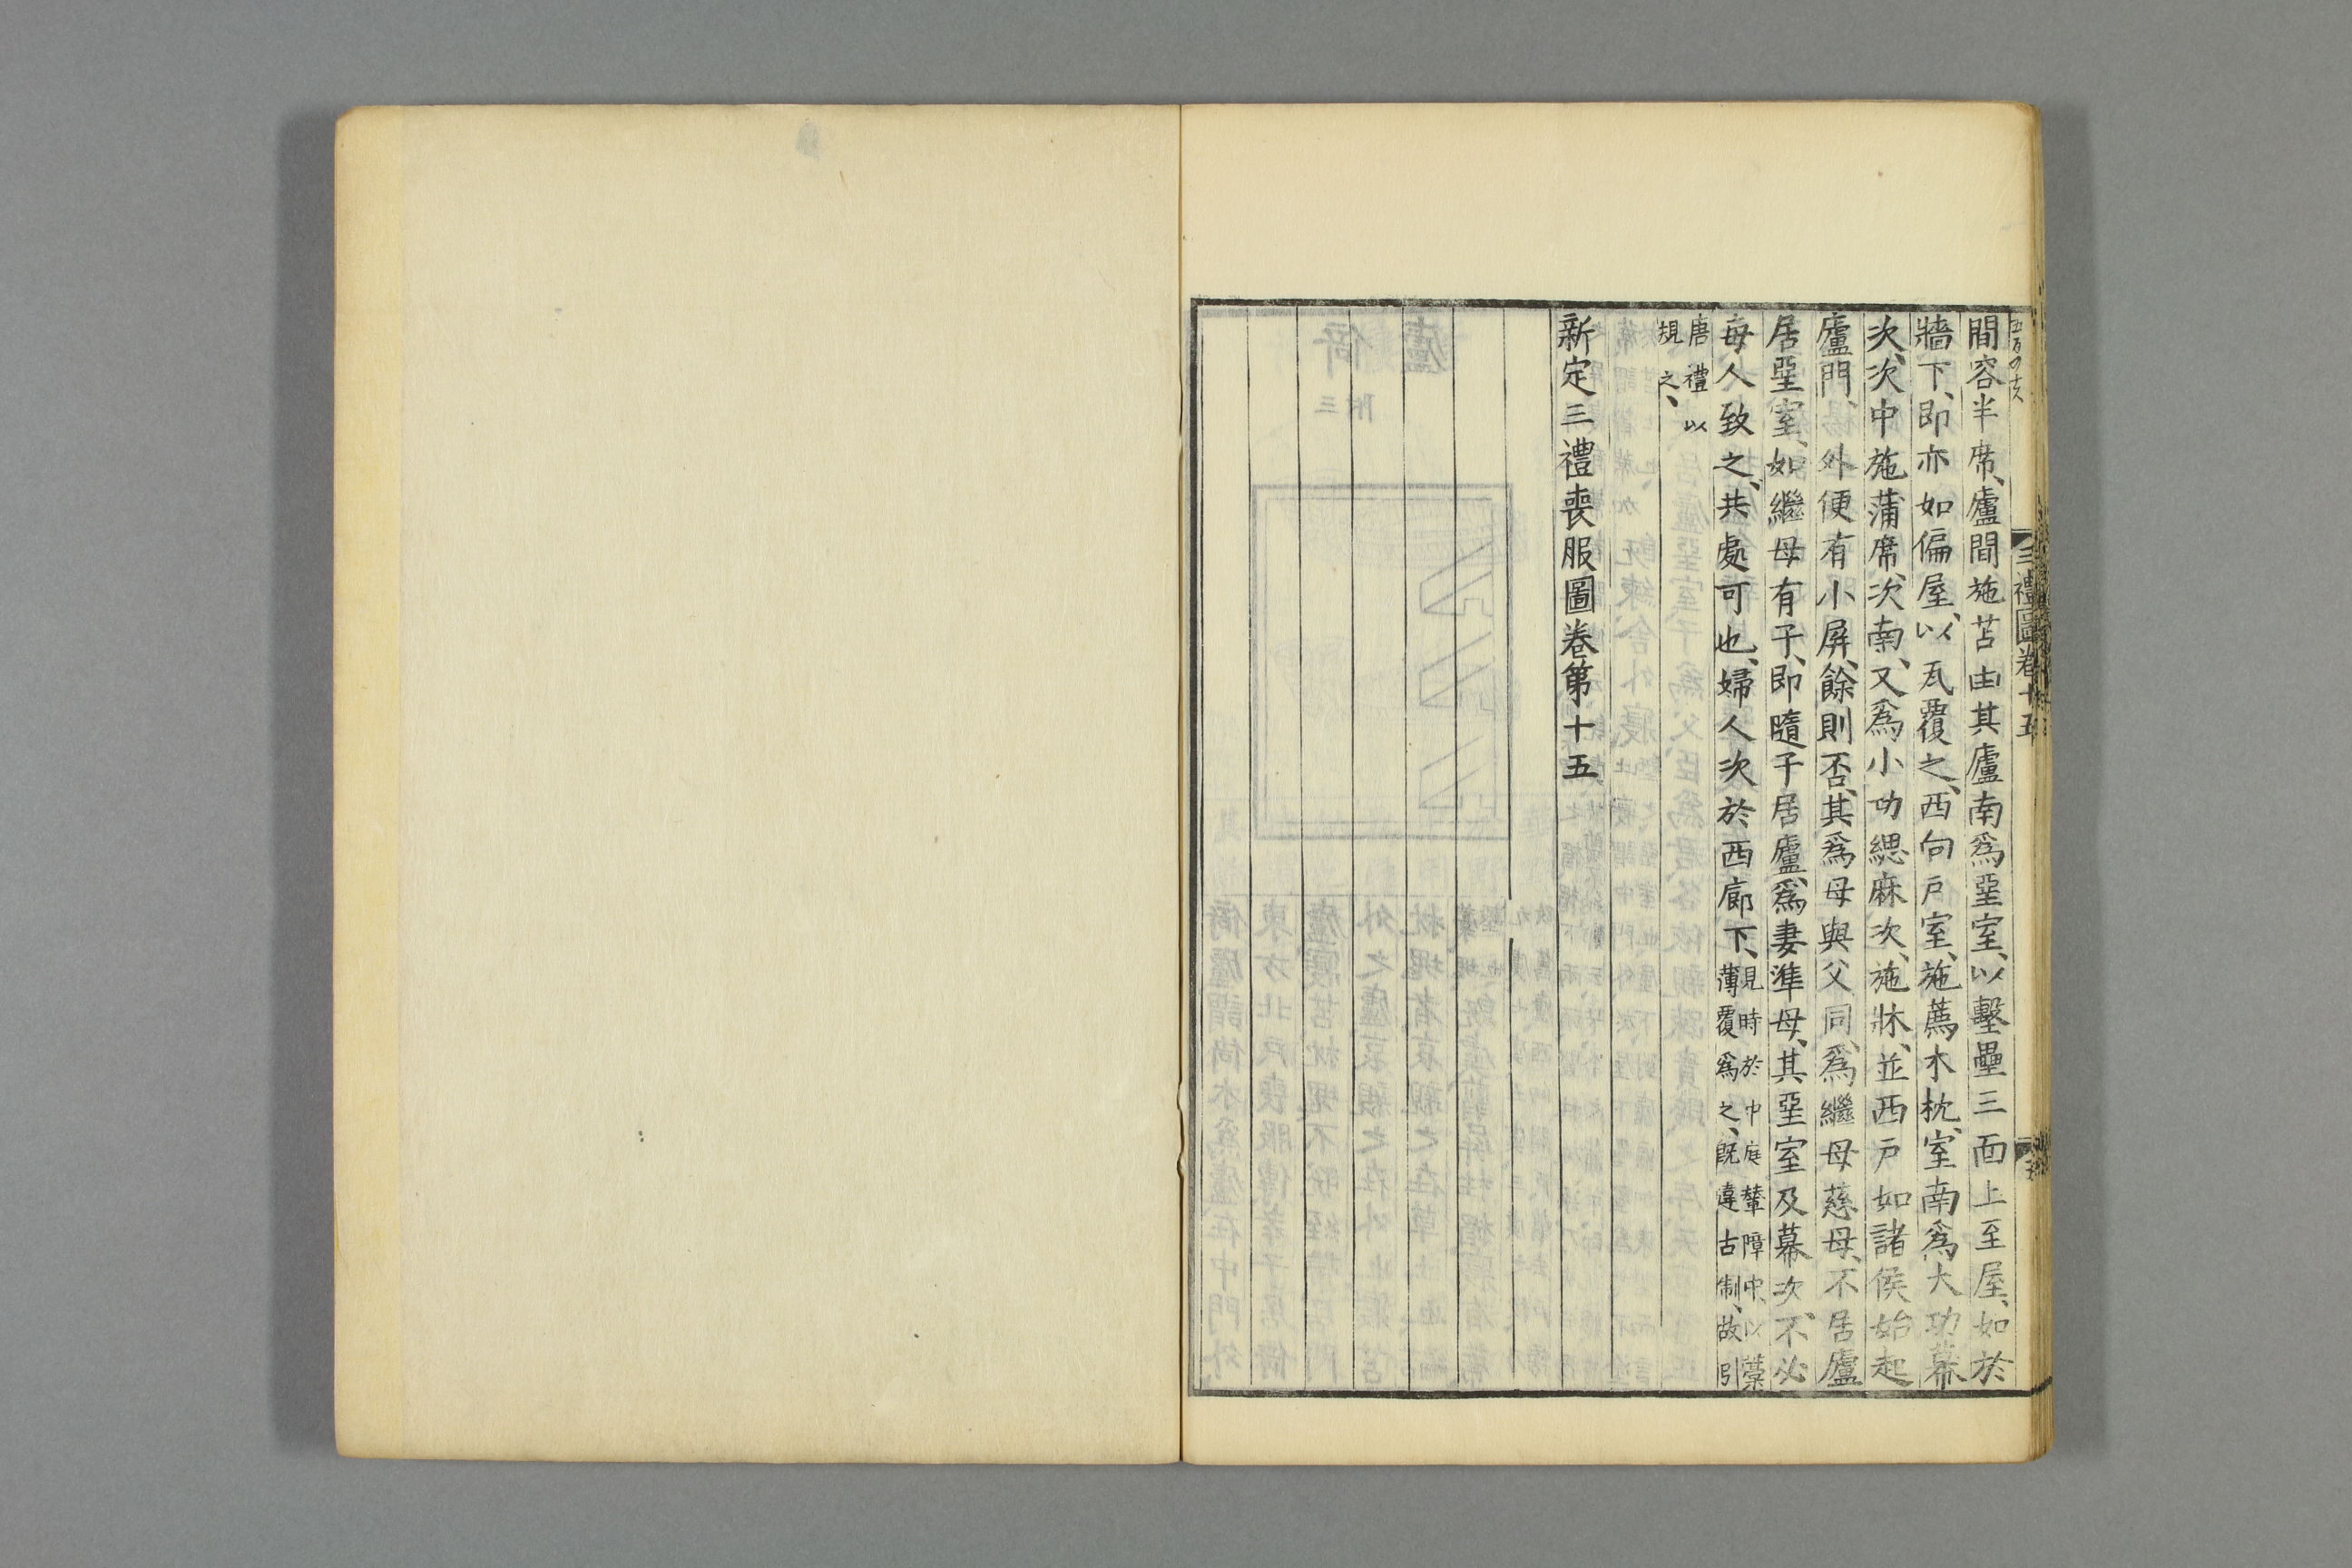 三禮圖卷十五
間容半席、廬間施苫由其廬南爲堊室、以墼壘三面上至屋、如於
牆下、即亦如偏屋、以瓦覆之、西向戶室、施薦木枕、室南爲大功幕
次、次中施蒲席、次南、又爲小功緦麻次、施牀、並西戶如諸侯始起
廬門、外便有小屏、餘則否、其爲母與父同、爲繼母慈母、不居廬
居堊室、如繼母有子、即隨子居廬、爲妻準母、其堊室及幕次、不必
每人致之、共處可也、婦人次於西廊下、見時於中庭輦障中、以藁
薄覆爲之、旣違古制、故引
唐禮以
規之、
新定三禮喪服圖卷第十五